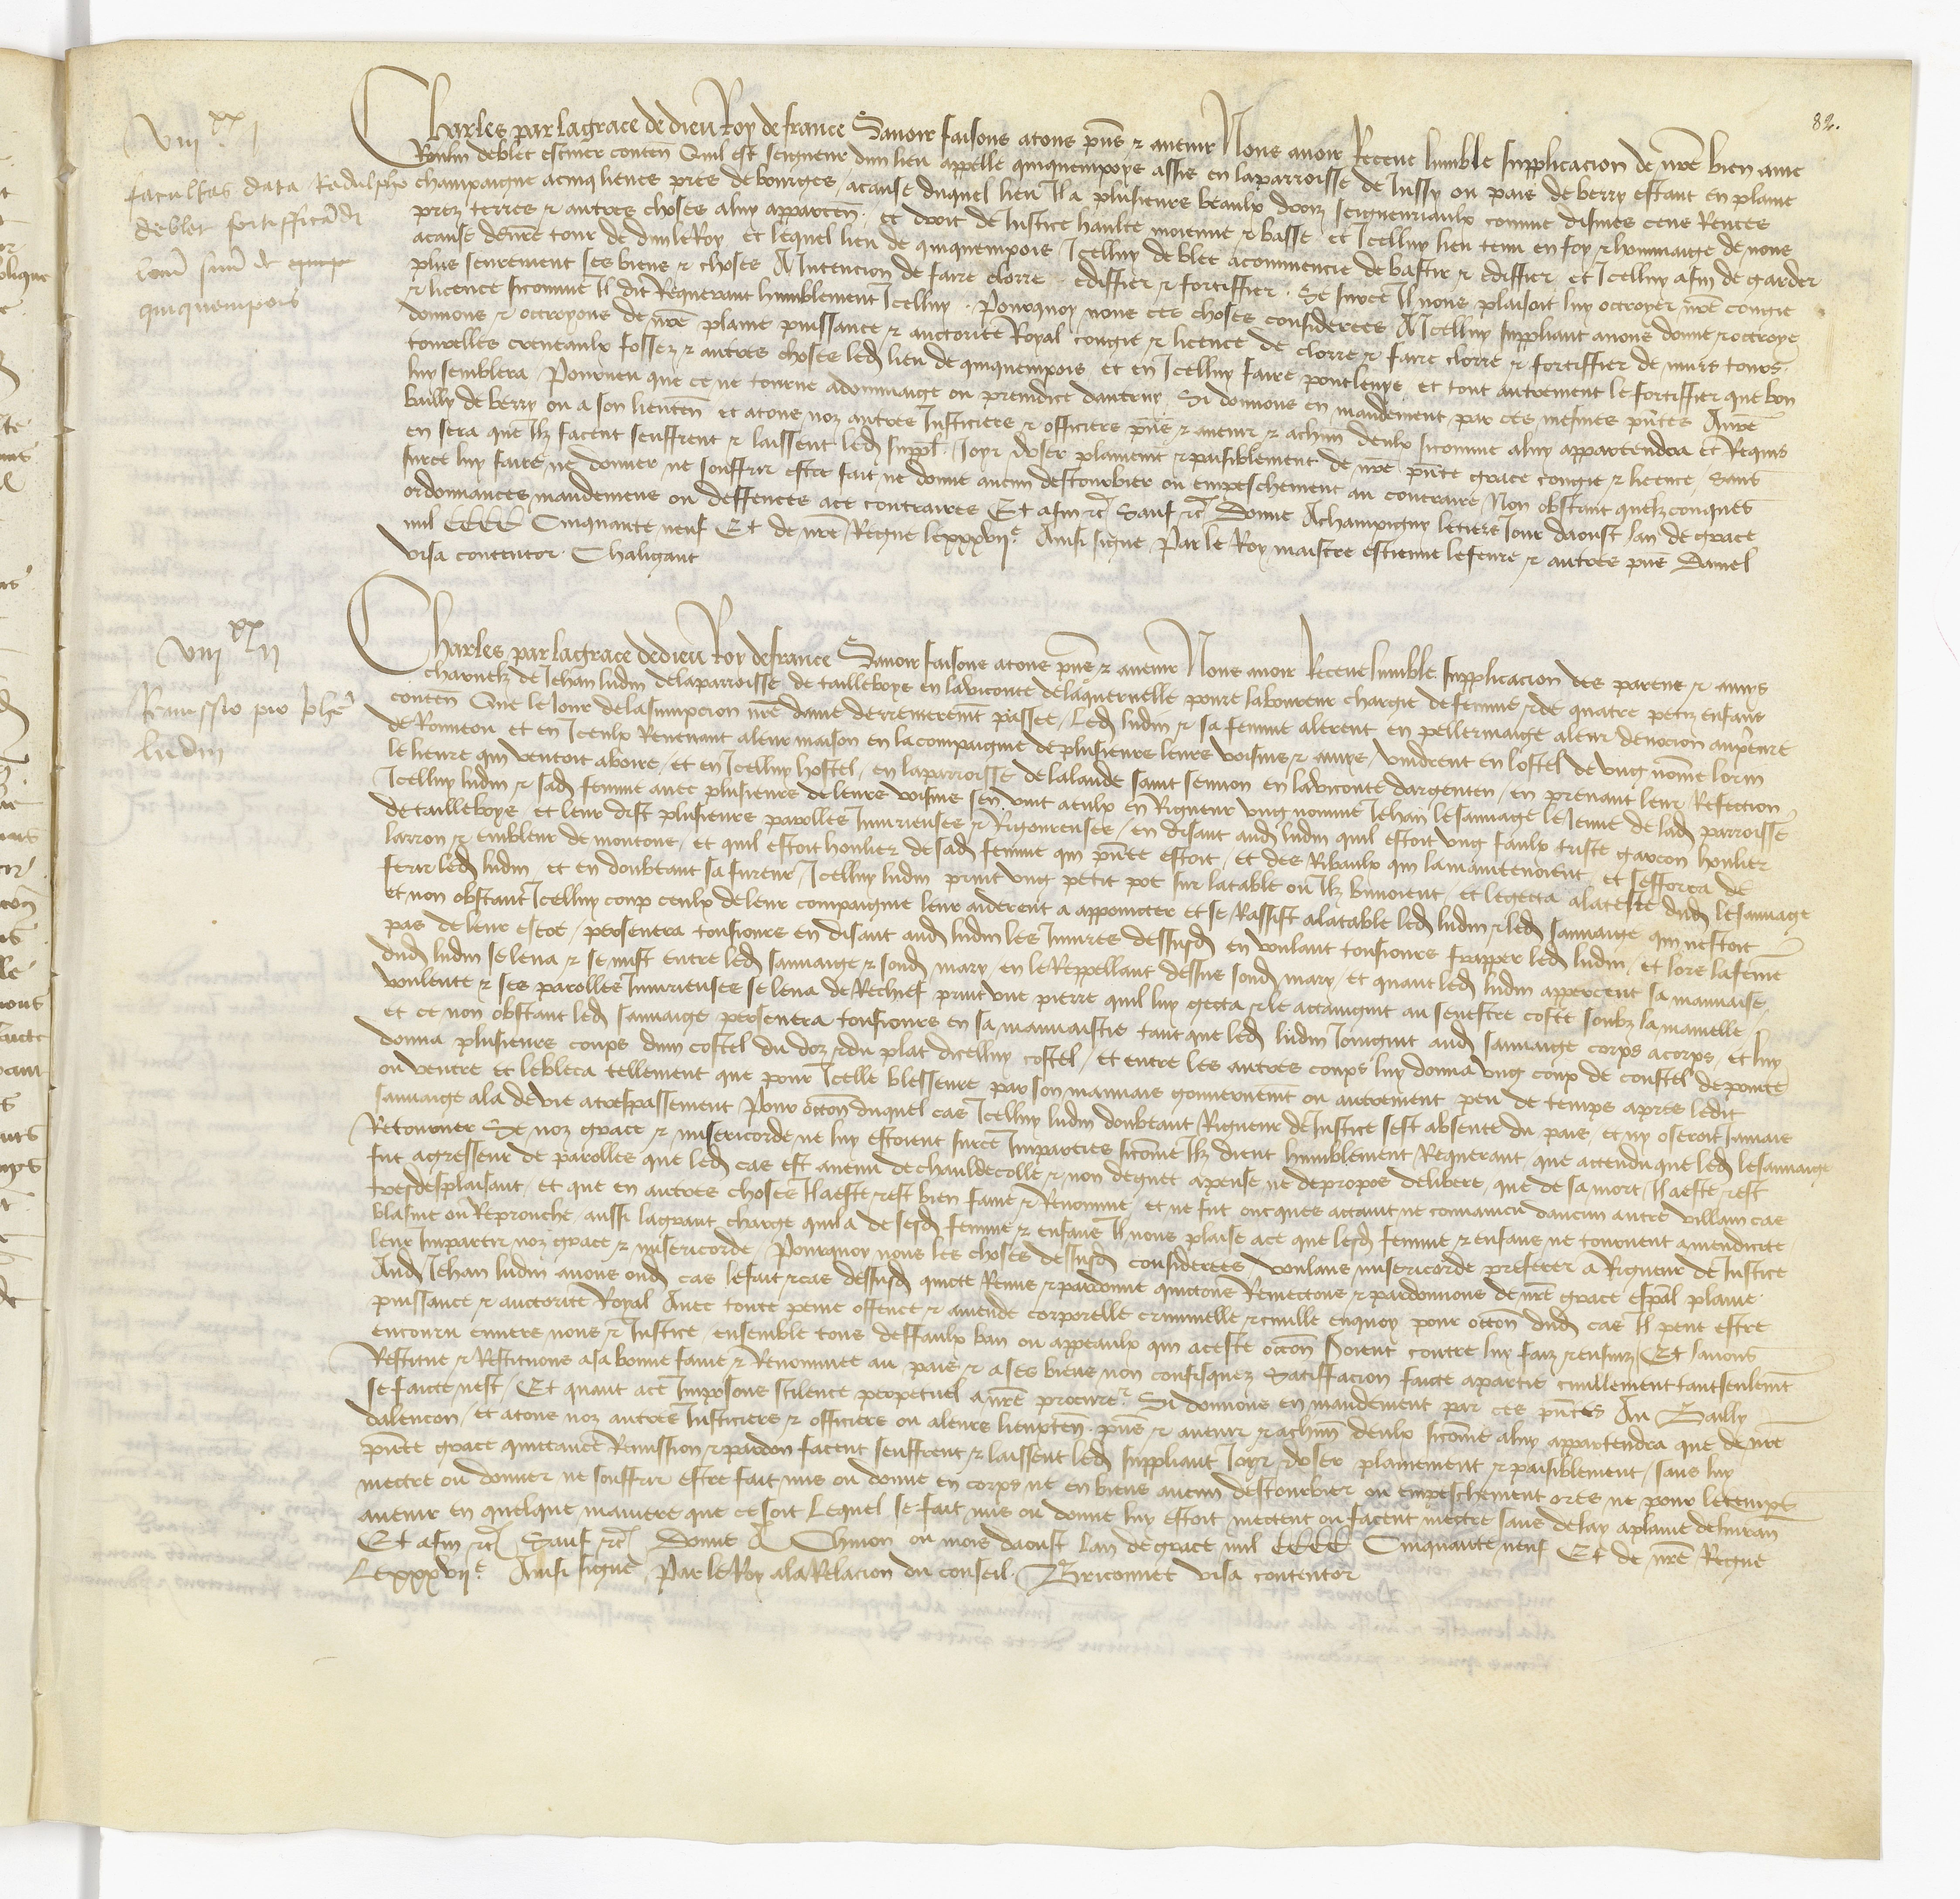 82.
VIII XX I
Facultas data Radulpho
de blet fortifficandi
locum suum de quique
quiquempois
Charles par la grace de dieu Roy de france Savoir faisons a tous pñs & avenir Nous avoir Receue lumble supplicacion de nrẽ bien ame
Roulin de blet escuier conteñ Quil est seigneur dun lieu appelle quiquempoys assis en la parroisse de Jussy ou pais de berry estant en plaine
champaigne a cinq lieues pres de bourges / a cause duquel lieu Il a plusieurs beaulx droiz seigneuriaulx comme dismes cens Rentes
prez terres & autres choses a luy apparteñ et droit de Justice haulte moienne & basse et Icelluy lieu tenu en foy & hommaige de nous
a cause de nrẽ tour de dun le Roy et lequel lieu de quiquempois Icelluy de blet a commencie de bastir & ediffier et Icelluy afin de garder
plus seurement ses biens & choses A Intencion de faire clorre ediffier & fortiffier . Se surce Il nous plaisoit luy octroyer nrẽ congie
& licence sicomme Il dit Requerant humblement Icelluy . Pourquoy nous ces choses considerees A Icelluy suppliant avons donne & octroye
donnons & octroyons de nrẽ plaine puissance & auctorite Royal congie & licence de clorre & faire clorre & fortiffier de murs tours
tourelles creneaulx fossez & autres choses led lieu de quiquempois et en Icelluy faire pont levys et tout autrement le fortiffier que bon
luy semblera Pourveu que ce ne tourne a dommaige ou preiudice dautruy Si donnons en mandement par ces mesmes pñtes A nrẽ
bailly de berry ou a son lieuteñ et a tous noz autres Justiciers & officiers pñs & avenir & a chũn deulx sicomme a luy appartendra et Requis
en sera que Ilz facent seuffrent & laissent led suppl. Joyr & user plainemẽt & paisiblement de nrẽ pñte grace congie & licence sans
surce luy faire ne donner ne souffrir estre fait ne donne aucun destourbier ou empeschement au contraire Non obstant quelzconques
ordonnances mandemens ou deffences a ce contraires Et afin &c Sauf &c Donne A champigny le tiers Jour daoust lan de grace
mil CCCC Cinquante neuf Et de nrẽ Regne le XXXVIIe. Ainsi signe Par le Roy maistre estienne lefevre & autres pñs Daniel
visa contentor Chaligaut
VIII XX II
Remissio pro Johẽ
ludin
Charles par la grace de dieu Roy de france Savoir faisons a tous pñs & avenir Nous avoir Receue lumble supplicacion des parens & amys
charnelz de Jehan ludin de la parroisse de tailleboys en la viconte de la quernelle povre laboureur chargie de femme & de quatre petiz enfans
conteñ Que le Jour de lasumpcion nrẽ dame derrenieremẽt passee / Led ludin & sa femme alerent en pellerinaige a leur devocion au prieure
de Rometou et en Iceulx Revenant a leur maison en la compaignie de plusieurs leurs voisins & amys / vindrent en lostel de ung nomme lorin
le lieure qui vendoit aboire / et en Icelluy hostel / en la parroisse de la lande saint semion en la viconte dargenten / en prenant leur Refection
Icelluy ludin & sad femme avec plusieurs de leurs voisins sen vint a eulx en Rigueur ung nomme Jehan le sauvage le Jeune de lad parroisse
de tailleboys / et leur dist plusieurs parolles Injurieuses & Rigoureuses / en disant aud ludin quil estoit ung faulx triste garcon houlier
larron & embleur de moutons / et quil estoit houlier de sad femme qui pñte estoit / et des Ribaulx qui la maintenoient et sefforca de
ferir led ludin / et en doubtant sa fureur / Icelluy ludin print ung petit pot sur la table ou Ilz buvoient et le gecta a la teste dud le sauvage
et non obstant Icelluy coup ceulx de leur compaignie leur aiderent a appoincter et se Rassist a la table led ludin & led sauvaige qui nestoit
pas de leur escot / persevera tousiours en disant aud ludin les Iniures dessusd en voulant tousiours frapper led ludin / et lors la feme
dud ludin se leva & se mist entre led sauvaige & sond mary / en le Reppellant dessus sond mary / et quant led ludin apperceut sa mauvaise
voulente & ses parolles Injurieuses se leva de Rechief print une pierre quil luy gecta & le actaingnit au senestre coste soubz la mamelle
et ce non obstant led sauvaige persevera tousiours en sa mauvaistie tant que led ludin Joingnit aud sauvaige corps a corps / et luy
donna plusieurs coups dun costel du doz & du plat dicelluy costel / et entre les autres coups luy donna ung coup de coustel de pointe
ou ventre et le bleca tellement que pour Icelle blesseure par son mauvais gouvernemẽt ou autrement peu de temps apres ledit
sauvaige ala de vie a trespassement Pour occoñ duquel cas Icelluy ludin doubtant Rigueur de Justice sest absente du pais / et ny oseroit Jamais
Retourner Se noz grace & misericorde ne luy estoient surce Imparties sicõme Ilz dient humblement Requerant / que actendu que led le sauvaige
fut agresseur de parolles que led cas est avenu de chauldecolle & non de guet apense ne de propos delibere / que de sa mort Il a este & est
tres desplaisant / et que en autres choses Il a este & est bien fame & Renomme / et ne fut oncques actaint ne convaincu daucun autre villain cas
blasme ou Reprouche / aussi la grant charge quil a de sesd femme & enfans Il nous plaise a ce que lesd femme & enfans ne tournent a mendicite
leur Impartir noz grace & misericorde / Pourquoy nous les choses dessusd considerees voulans misericorde preferer a Rigueur de Justice
Aud Jehan ludin avons oud cas le fait & cas dessusd quicte Remis & pardonne quictons Remectons & pardonnons de nrẽ grace espal plaine
puissance & auctorite Royal Avec toute peine offence & amende corporelle criminelle & civille enquoy pour occoñ dud cas Il peut estre
encouru envers nous & Justice / ensemble tous deffaulx ban ou appeaulx qui a ceste occoñ soient contre luy faiz & ensuiz Et lavons
Restitue & Restituons a sa bonne fame & Renommee au pais & a ses biens non confisquez satiffacion faicte a partie civillement tant seulemẽt
se faicte nest / Et quant a ce Imposons scilence perpetuel a nrẽ procureur Si donnons en mandement par ces pñtes Au Bailly
dalencon / et a tous noz autres Justiciers & officiers ou a leurs lieuxteñ pñs & avenir & a chũn deulx sicõme a luy appartendra que de nrẽ
pñte grace quictance Remission & pardon facent seuffrent & laissent led suppliant Joyr & user plainement & paisiblement / sans luy
mectre ou donner ne souffrir estre fait mis ou donne en corps ne en biens aucun destourbier ou empeschement ores ne pour le temps
avenir en quelque maniere que ce soit Lequel se fait mis ou donne luy estoit mectent ou facent mectre sans delay a plaine delivran
Et afin &c Sauf &c Donne A Chinon ou mois daoust lan de grace mil CCCC Cinquante neuf Et de nrẽ Regne
Le XXXVIIe Ainsi signe Par le Roy a la Relacion du conseil . Briconnet visa contentor